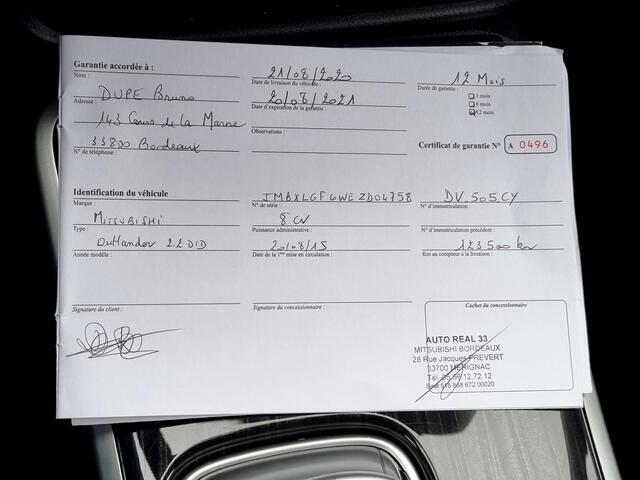 Garantie accordée à :
Nom :
DUPE Bruno
Adresse :
143 Cours de la Marne
33800 Bordeaux
N° de téléphone :
21/08/2020
Date de livraison du véhicule :
20/08/2021
Date d'expiration de la garantie :
Observations :
12 Mois
Durée de garantie :
3 mois
6 mois
12 mois
Certificat de garantie N° A 0496
Identification du véhicule
Marque :
MITSUBISHI
Type :
Outlander 2.2 DID
Année modèle :
JMBXLGF6WEZD04758
N° de série :
8 CV
Puissance administrative :
20/08/15
Date de la 1ère mise en circulation :
DV.505.CY
N° d'immatriculation :
N° d'immatriculation précédent :
123500 km
Km au compteur à la livraison :
Signature du client :
Signature du concessionnaire :
Cachet du concessionnaire
AUTO REAL 33
MITSUBISHI BORDEAUX
28 Rue Jacques PREVERT
33700 MERIGNAC
Tél. 05.56.12.72.12
Siret 518 868 672 00020